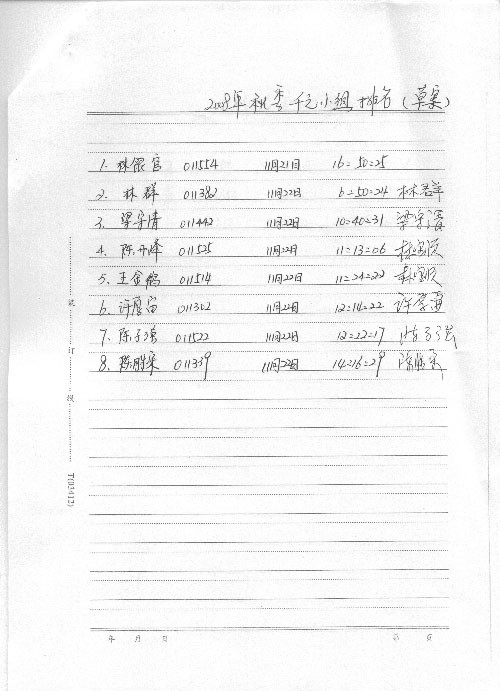 2008年秋季千元小组排名（草案）
1. 林银官 011554 11月21日 16=50=25
2. 林群 011382 11月22日 6=50=24 林群
3. 梁宇清 011442 11月22日 10=40=31 梁宇清
4. 陈丹峰 011525 11月22日 11=13=06
5. 王金鹤 011514 11月22日 11=24=22
6. 许厚富 011302 11月22日 12=14=22
7. 陈子强 011522 11月22日 12=22=17 陈子强
8. 陈胜荣 011339 11月22日 14=16=29
装
订
线
T(03412)
年 月 日 第 页